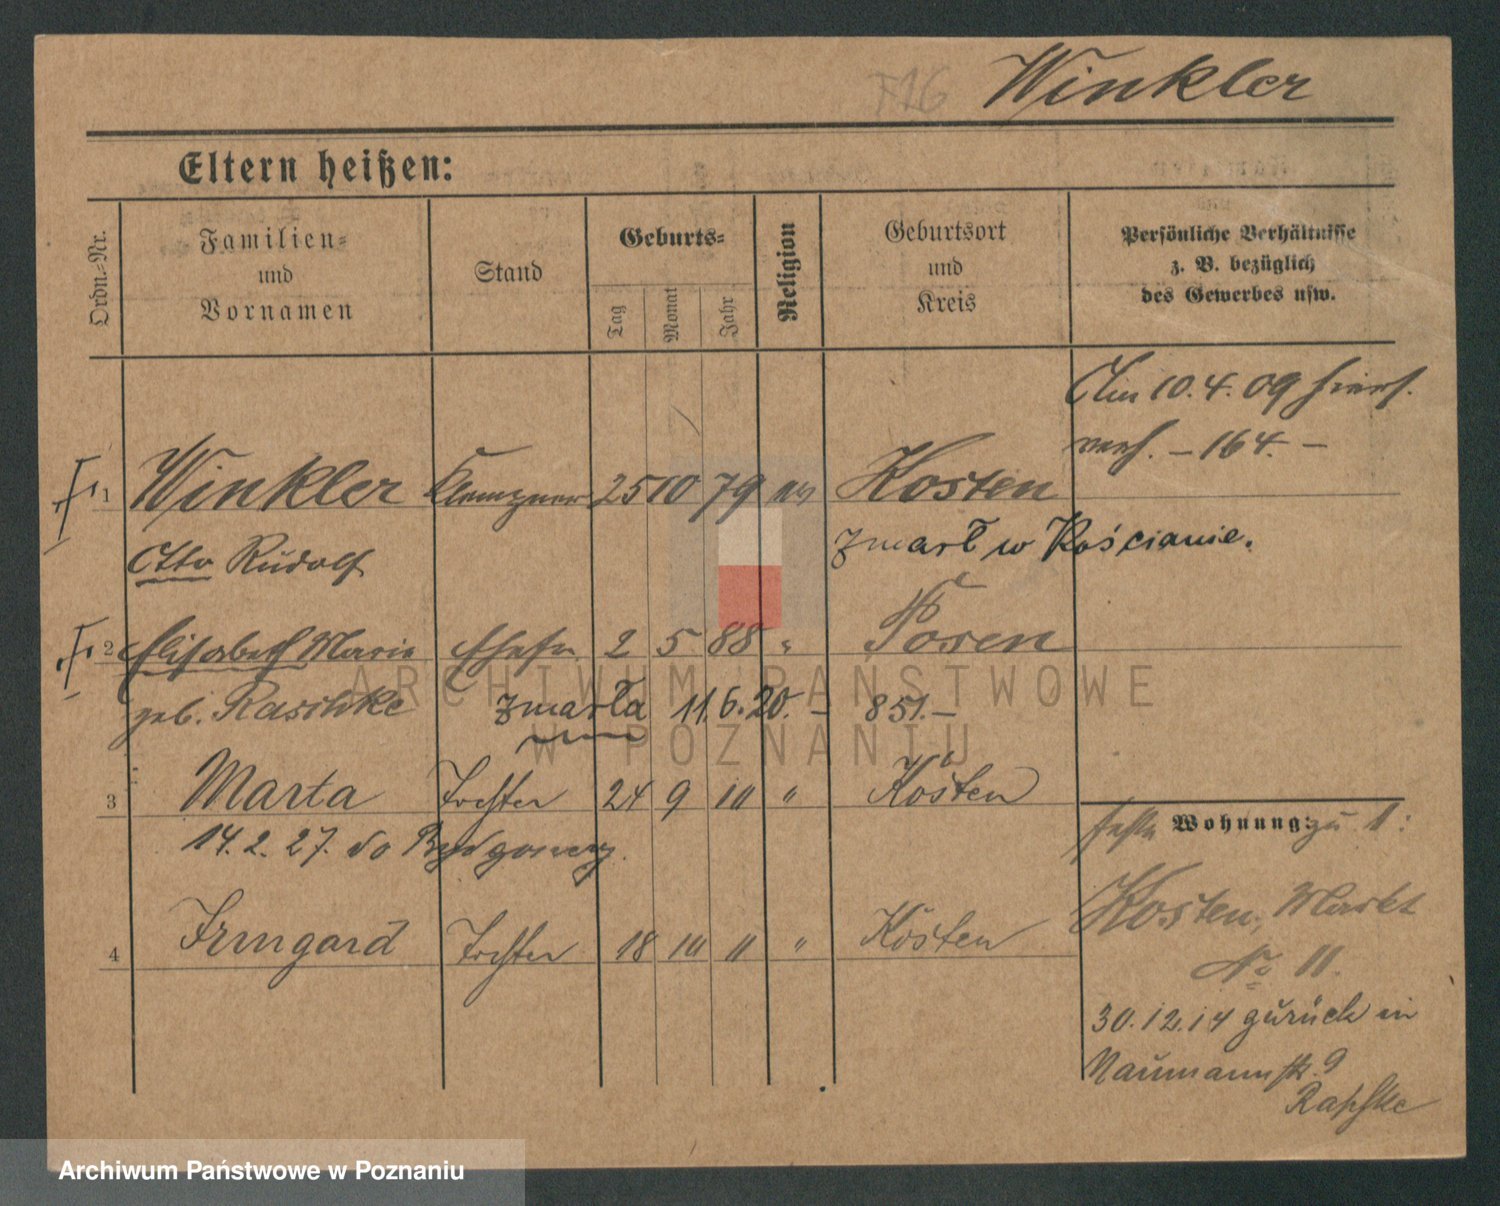 F16 Winkler
Eltern heißen:
Ordn.-Nr.
Familien-
und
Vornamen
Stand
Geburts-
Tag
Monat
Jahr
Religion
Geburtsort
und
Kreis
Persönliche Verhältnisse
z. B. bezüglich
des Gewerbes usw.
Am 10.4.09 hiers.
verh. – 164. –
1 Winkler Klempner 25 10 79 Kosten
Otto Rudolf
zmarł w Kościanie.
2 Elisabeth Marie Ehefr. 2 5 88 " Posen
geb. Raschke zmarła 11.6.20. – 851. –
3 Marta Tochter 24 9 10 " Kosten
14.2.27. do Bydgoszczy.
4 Irmgard Tochter 18 10 11 " Kosten
Wohnung: zu 1:
Kosten, Markt
No 11.
30.12.14 zurück in
Naumannstr. 9
Raschke
ARCHIWUM PAŃSTWOWE
W POZNANIU
Archiwum Państwowe w Poznaniu